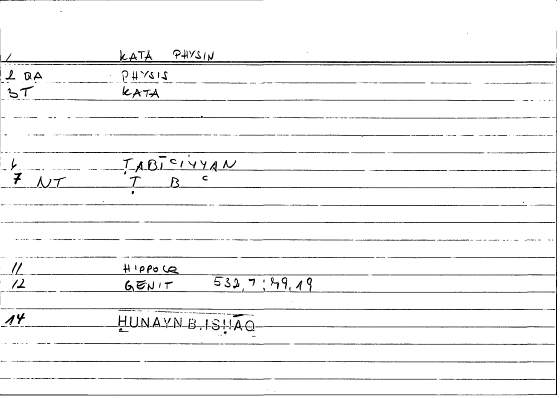 1 KATA PHYSIN
2 QA PHYSIS
3T KATA
6 ṬABĪʿIYYAN
7 NT Ṭ B ʿ
11 HIPPOCR
12 GENIT 532,7 ; 49,19
14 ḤUNAYN B. ISḤĀQ